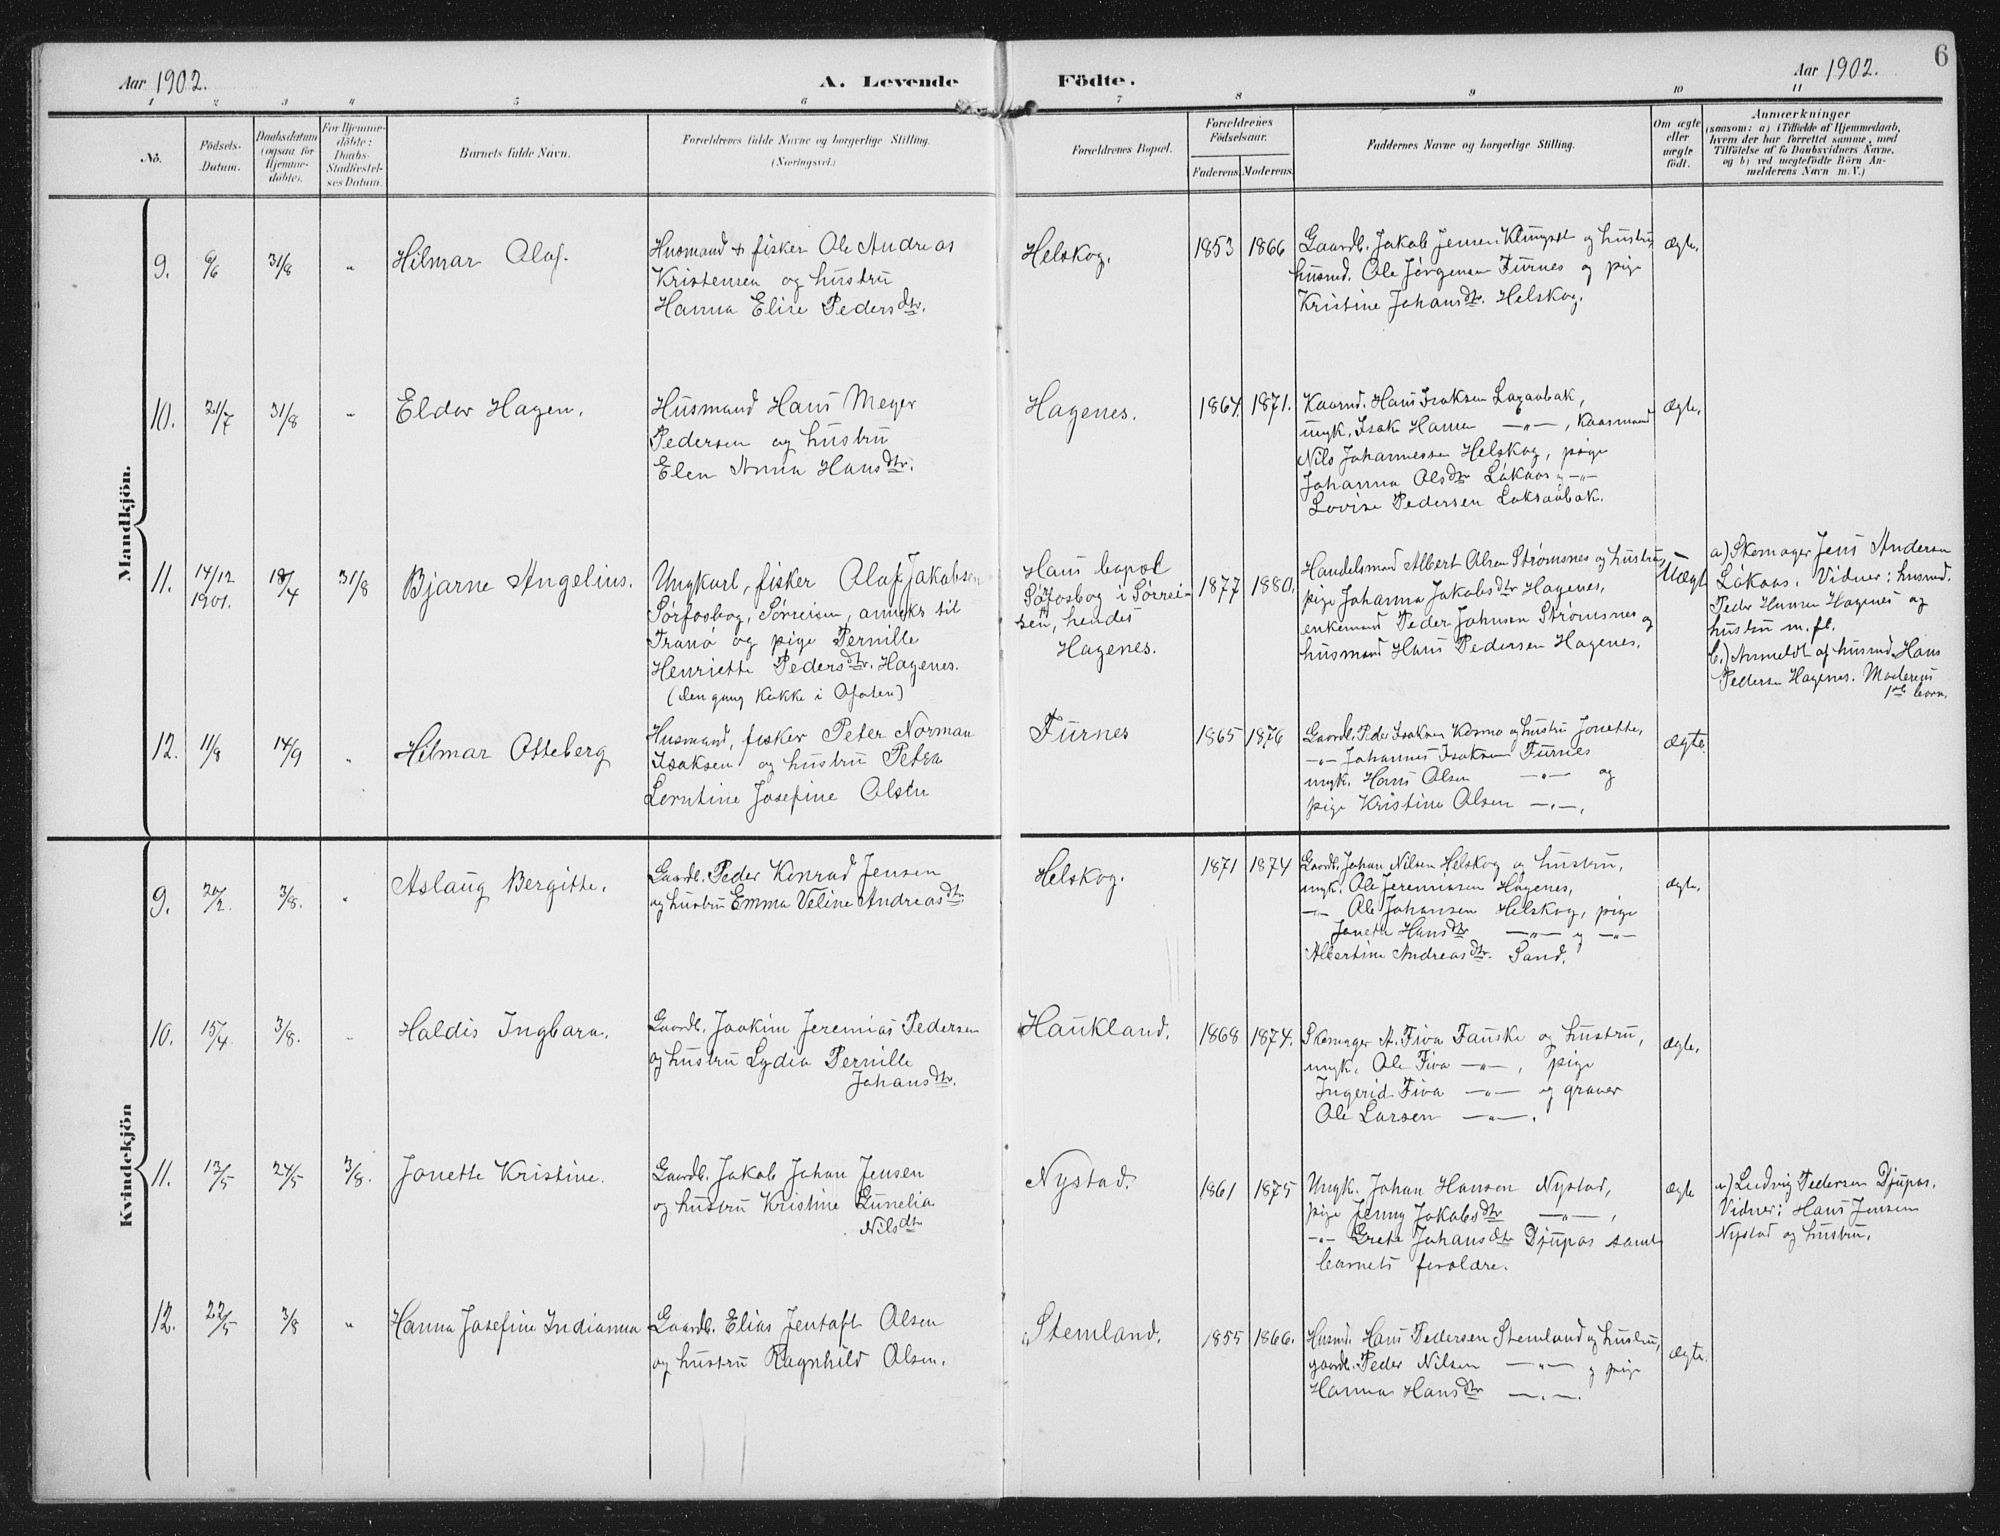 6
Aar 1902.
A. Levende Födte.
Aar 1902.
1 2 3 4 5 6 7 8 9 10 11
No.
Födsels-
Datum.
Daabsdatum
(ogsaa for
Hjemme-
döbte).
For Hjemme-
döbte:
Daabs-
Stadfæstel-
ses Datum.
Barnets fulde Navn.
Forældrenes fulde Navne og borgerlige Stilling.
(Næringsvei.)
Forældrenes Bopæl.
Forældrenes
Födselsaar.
Faderens. Moderens.
Faddernes Navne og borgerlige Stilling.
Om ægte
eller
uægte
födt.
Anmærkninger
(saasom: a) i Tilfælde af Hjemmedaab,
hvem der har forrettet samme, med
Tilföielse af to Daabsvidners Navne,
og b) ved uegtefödte Börn An-
melderens Navn m. V.)
Mandkjön.
9. 6/6 31/8 " Hilmar Olaf.
Husmand & fisker Ole Andreas
Kristensen og hustru
Hanna Elise Pedersdtr.
Helskog.
1853 1866
Gaardb. Jakob Jensen og hustru
husmd. Ole Jørgensen Furnes og pige
Kristine Johansdtr. Helskog.
Ægte.
10. 21/7 31/8 " Eldor Hagen.
Husmand Hans Meyer
Pedersen og hustru
Elen Anna Hansdtr.
Hagenes.
1864. 1871.
Kaarmd. Hans Isaksen
ungk. Isak Hansen —"—, Kaarmand
Nils Johannessen Helskog, pige
Johanna Olsdtr Løkaas og —"—
Lovise Pedersen Laksaabak.
Ægte.
11. 14/12 1901. 18/4 31/8 Bjarne Angelius.
Ungkarl, fisker Olaf Jakobsen
Sørfosbog, Sørreisen, anneks til
Tranø og pige Pernille
Henriette Pedersdtr. Hagenes.
(den gang Kokke i Ofoten)
Hans bopæl
Sørfosbog i Sørrei-
sen, hendes
Hagenes.
1877 1880.
Handelsmand Albert Olsen Strømsnes og hustru,
pige Johanna Jakobsdtr Hagenes,
enkemand Peder Johnsen Strømsnes og
husmand Hans Pedersen Hagenes.
Uægte
a) Skomager Jens Andersen
Løkaas. Vidner: husmd.
Peder Hansen Hagenes og
hustru m. fl.
b.) Anmeldt af husmd Hans
Pedersen Hagenes. Moderens
1ste barn.
12. 11/8 14/9 " Hilmar Otteberg
Husmand, fisker Peter Norman
Isaksen og hustru Petra
Lerntine Josefine Olsen
Furnes
1865 1876
Gaardb. Peder Isaksen Kosmo og hustru Jonette,
—"— Johannes Isaksen Furnes
ungk. Hans Olsen —"— og
pige Kristine Olsen —"—.
Ægte.
Kvindekjön
9. 20/2. 3/8. " Aslaug Bergitte.
Gaardb. Peder Konrad Jensen
og hustru Emma Veline Andreasdtr.
Helskog.
1871 1874
Gaardb. Johan Nilsen Helskog og hustru,
ungk. Ole Jeremiasen Hagenes,
—"— Ole Johansen Helskog, pige
Joneta Hansdtr —"— og —"—
Albertine Andreasdtr. Sand.
Ægte.
10. 15/4 3/8. " Haldis Ingbara.
Gaardb. Joakim Jeremias Pedersen
og hustru Lydia Pernille
Johansdtr.
Haukland.
1868 1874.
Skomager A. Fiva Fauske og hustru,
ungk. Ole Fiva —"—, pige
Ingerid Fiva —"— og graver
Ole Larsen —"—.
Ægte.
11. 13/5 24/5 3/8. Jonette Kristine.
Gaardb. Jakob Johan Jensen
og hustru Kristine Gunelia
Nilsdtr
Nystad.
1861 1875
Ungk. Johan Hansen Nystad,
pige Jenny Jakobsdtr —"—,
—"— Grete Johansdtr Djupos samt
barnets foroldre.
Ægte
a) Ludvig Pedersen Djupos.
Vidner: Hans Jensen
Nystad og hustru.
12. 22/5 3/8 " Hanna Josefine Indianna
Gaardb. Elias Jentoft Olsen
og hustru Ragnhild Olsen.
Stemland.
1855 1866.
Husmd. Hans Pedersen Stemland og hustru,
gaardb. Peder Nilsen —"— og pige
Hanna Hansdtr —"—.
Ægte.